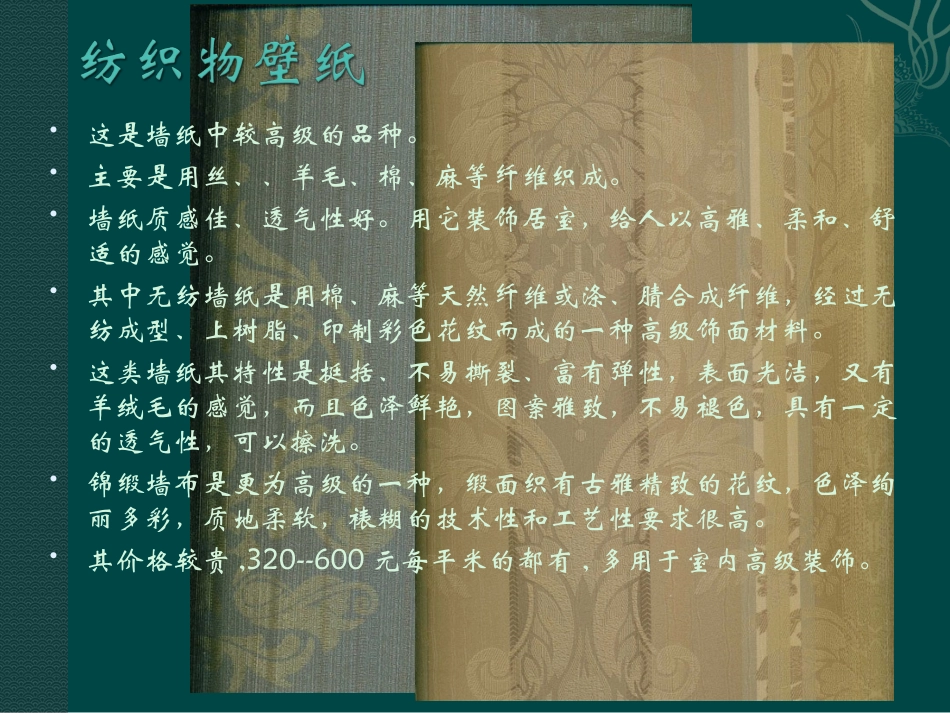 纺织物壁纸
• 这是墙纸中较高级的品种。
• 主要是用丝、、羊毛、棉、麻等纤维织成。
• 墙纸质感佳、透气性好。用它装饰居室，给人以高雅、柔和、舒
适的感觉。
• 其中无纺墙纸是用棉、麻等天然纤维或涤、腈合成纤维，经过无
纺成型、上树脂、印制彩色花纹而成的一种高级饰面材料。
• 这类墙纸其特性是挺括、不易撕裂、富有弹性，表面光洁，又有
羊绒毛的感觉，而且色泽鲜艳，图案雅致，不易褪色，具有一定
的透气性，可以擦洗。
• 锦缎墙布是更为高级的一种，缎面织有古雅精致的花纹，色泽绚
丽多彩，质地柔软，裱糊的技术性和工艺性要求很高。
• 其价格较贵 ,320--600 元每平米的都有 , 多用于室内高级装饰。